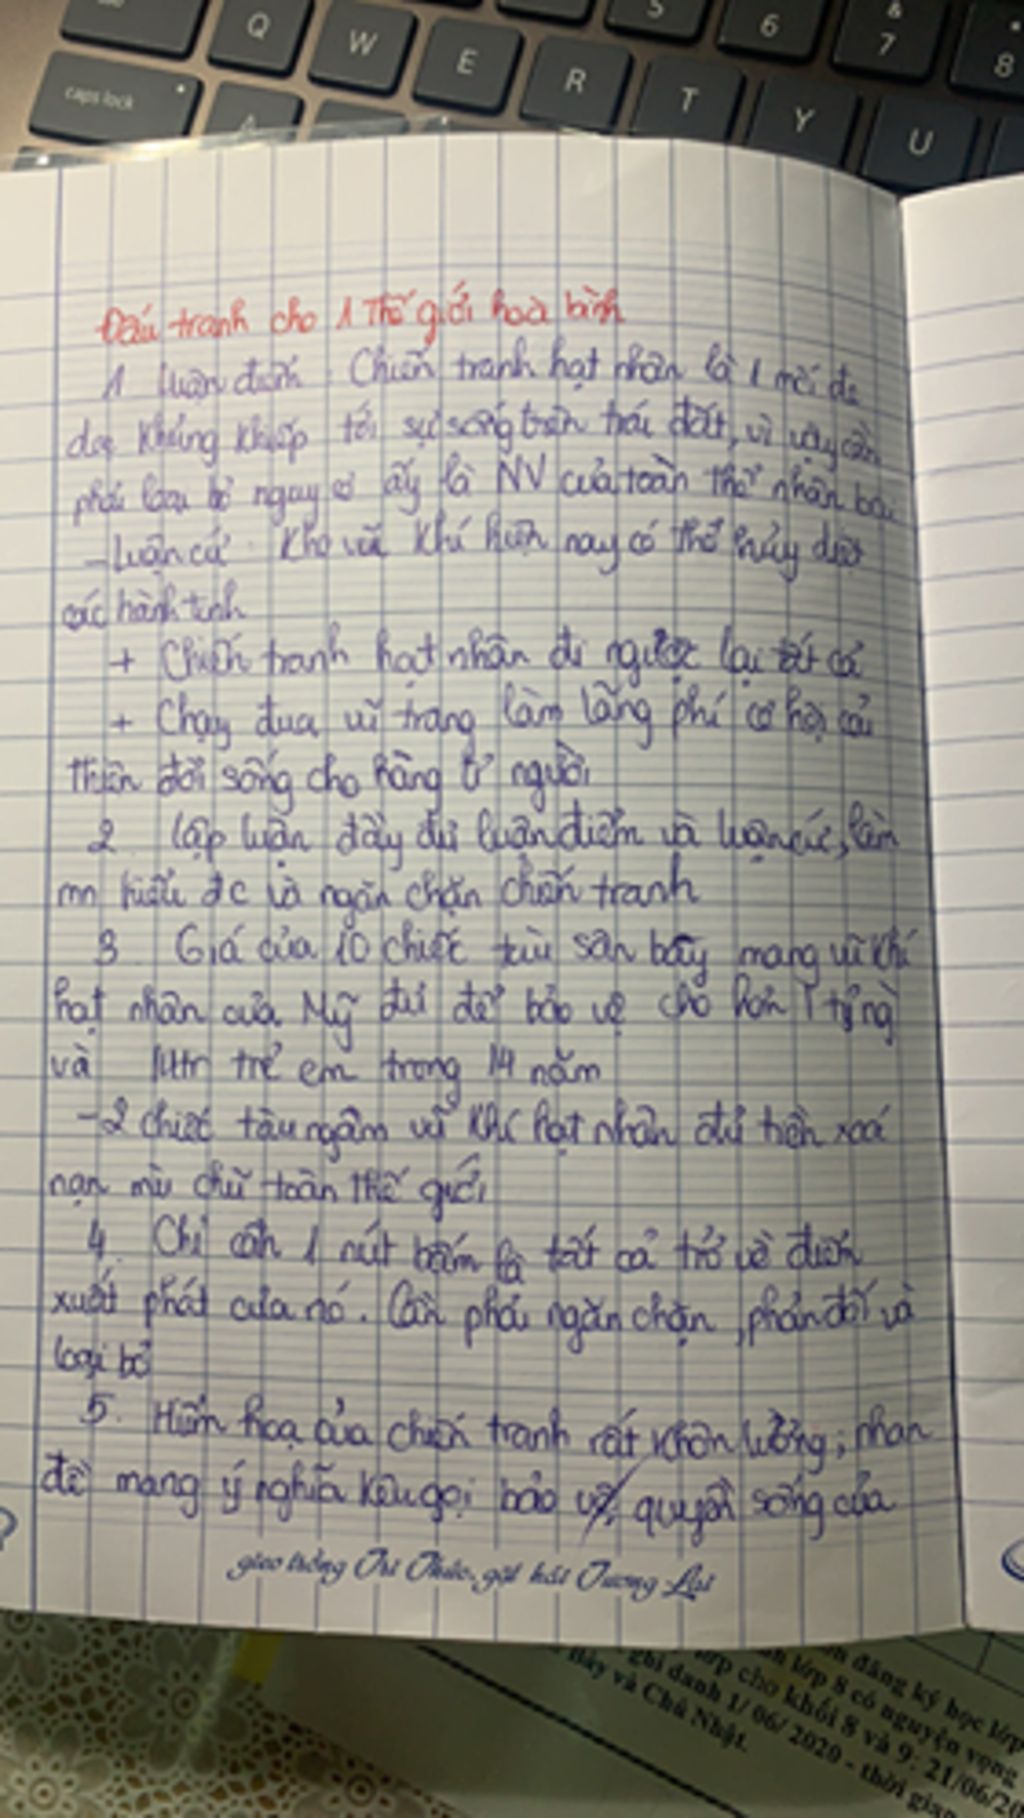 Q W E R T Y U
5 6 & 7 * 8
caps lock A
Đấu tranh cho 1 Thế giới hoà bình
1 Luận điểm: Chiến tranh hạt nhân là 1 mối đe
doạ khủng khiếp tới sự sống trên trái đất, vì vậy cần
phải loại bỏ nguy cơ ấy là NV của toàn thể nhân loại
- Luận cứ: Kho vũ khí hiện nay có thể hủy diệt
các hành tinh
+ Chiến tranh hạt nhân đi ngược lại tất cả
+ Chạy đua vũ trang làm lãng phí cơ hội cải
thiện đời sống cho hàng tỉ người
2 Lập luận đầy đủ luận điểm và luận cứ, làm
mn hiểu đc và ngăn chặn chiến tranh
3 Giá của 10 chiếc tàu sân bay mang vũ khí
hạt nhân của Mỹ đủ để bảo vệ cho hơn 1 tỷ ng
và 14tr trẻ em trong 14 năm
- 2 chiếc tàu ngầm vũ khí hạt nhân đủ tiền xoá
nạn mù chữ toàn thế giới
4 Chỉ cần 1 nút bấm là tất cả trở về điểm
xuất phát của nó. Cần phải ngăn chặn, phản đối và
loại bỏ
5. Hiểm hoạ của chiến tranh rất khôn lường, nhan
đề mang ý nghĩa kêu gọi bảo vệ quyền sống của
gieo trồng Tri Thức, gặt hái Tương Lai
đăng ký học lớp
lớp 8 có nguyện vọng
lớp cho khối 8 và 9: 21/06/20
ghi danh 1/ 06/ 2020 - thời gian
Bảy và Chủ Nhật.